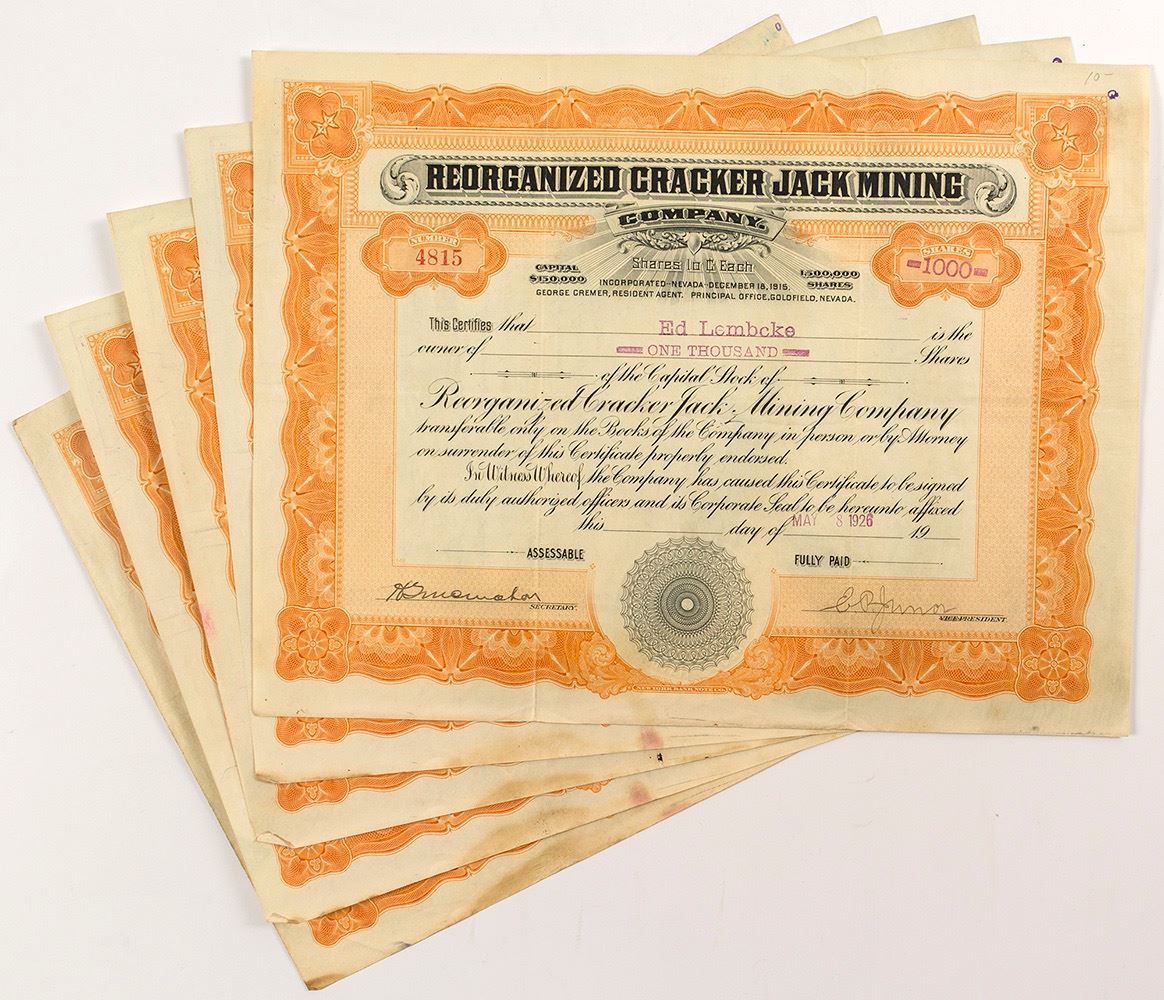 10-
REORGANIZED CRACKER JACK MINING
COMPANY.
NUMBER
4815
SHARES
1000
Shares 10 ₵ Each
CAPITAL
$150,000
1,500,000
SHARES
INCORPORATED--NEVADA--DECEMBER 18, 1915.
GEORGE CREMER, RESIDENT AGENT. PRINCIPAL OFFICE, GOLDFIELD, NEVADA.
This Certifies that Ed Lembcke is the
owner of ONE THOUSAND Shares
of the Capital Stock of
Reorganized Cracker Jack Mining Company
transferable only on the Books of the Company in person or by Attorney
on surrender of this Certificate properly endorsed.
In Witness Whereof, the Company has caused this Certificate to be signed
by its duly authorized officers and its Corporate Seal to be hereunto affixed
this day of MAY 8 1926 19
ASSESSABLE
FULLY PAID
SECRETARY.
VICE-PRESIDENT.
NEW YORK BANK NOTE CO.